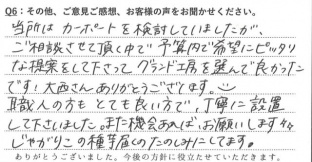 Q6：その他、ご意見ご感想、お客様の声をお聞かせください。
当所はカーポートを検討していましたが、
ご相談させて頂く中で予算内で希望にピッタリ
な提案をして下さってグランド工房を選んで良かった
です！大西さんありがとうございます。
職人の方もとても良い方で、丁寧に設置
して下さいました。また機会あれば、お願いします♪
じゃがりこの種芋届くのたのしみにしてます。
ありがとうございました。今後の方針に役立たせていただきます。